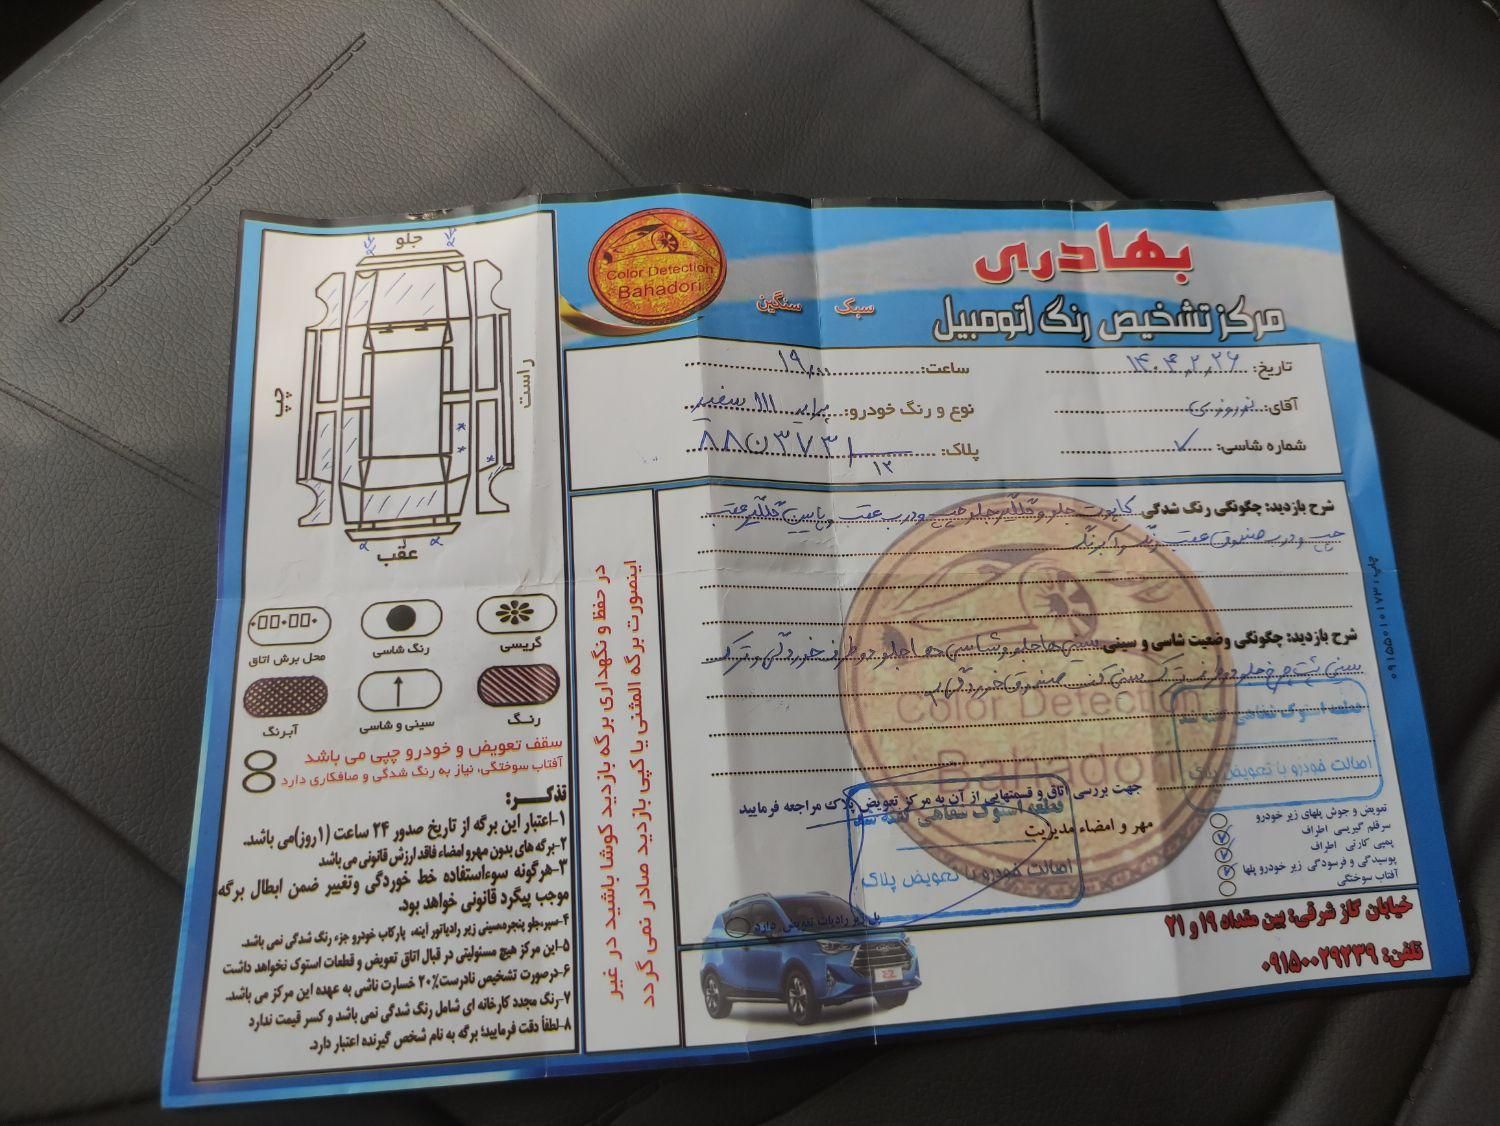 بهادری
مرکز تشخیص رنگ اتومبیل
Color Detection
Bahadori
سبک
سنگین
تاریخ: ۱۴۰۴,۲,۲۶
ساعت: ۱۹
آقای: نوروزی
نوع و رنگ خودرو: پراید ۱۱۱ سفید
شماره شاسی: ✓
پلاک: ۸۸ن۳۷۳
۱۲
شرح بازدید: چگونگی رنگ شدگی کاپوت جلو و گلگیر جلو چپ و درب عقب و پایین گلگیر عقب
چپ و درب صندوق عقب رنگ و آبرنگ
شرح بازدید: چگونگی وضعیت شاسی و سینی سینی ها جلو و شاسی ها جلو دو طرف خوردگی و ترک
سینی پشت چرخ جلو دو طرف ترک سینی کف صندوق خوردگی
Color Detection
Bahadori
قطعه استوک شفاهی گفته شد
اصالت خودرو با تعویض پلاک
جهت بررسی اتاق و قسمتهایی از آن به مرکز تعویض پلاک مراجعه فرمایید
قطعه استوک شفاهی گفته شد
مهر و امضاء مدیریت
اصالت خودرو با تعویض پلاک
تعویض و جوش پلهای زیر خودرو
سرقلم گیرسی اطراف
پمپی کارتی اطراف
پوسیدگی و فرسودگی زیر خودرو پلها
آفتاب سوختگی
پل زیر رادیات تعویض دارد
خیابان گاز شرقی: بین مقداد ۱۹ و ۲۱
تلفن: ۰۹۱۵۰۰۲۹۲۳۹
چاپ: ۰۹۱۵۵۰۱۰۱۷۳
در حفظ و نگهداری برگه بازدید کوشا باشید در غیر
اینصورت برگه المثنی یا کپی بازدید صادر نمی گردد
جلو
راست
چپ
عقب
گریسی
رنگ شاسی
محل برش اتاق
رنگ
سینی و شاسی
آبرنگ
سقف تعویض و خودرو چپی می باشد
آفتاب سوختگی، نیاز به رنگ شدگی و صافکاری دارد
تذکر:
۱-اعتبار این برگه از تاریخ صدور ۲۴ ساعت (۱روز)می باشد.
۲-برگه های بدون مهرو امضاء فاقد ارزش قانونی می باشد
۳-هرگونه سوءاستفاده خط خوردگی وتغییر ضمن ابطال برگه
موجب پیگرد قانونی خواهد بود.
۴-سپر،جلو پنجره،سینی زیر رادیاتور آینه، پارکاب خودرو جزء رنگ شدگی نمی باشد.
۵-این مرکز هیچ مسئولیتی در قبال اتاق تعویض و قطعات استوک نخواهد داشت
۶-درصورت تشخیص نادرست۲۰٪ خسارت ناشی به عهده این مرکز می باشد.
۷-رنگ مجدد کارخانه ای شامل رنگ شدگی نمی باشد و کسر قیمت ندارد
۸-لطفاً دقت فرمایید؛ برگه به نام شخص گیرنده اعتبار دارد.